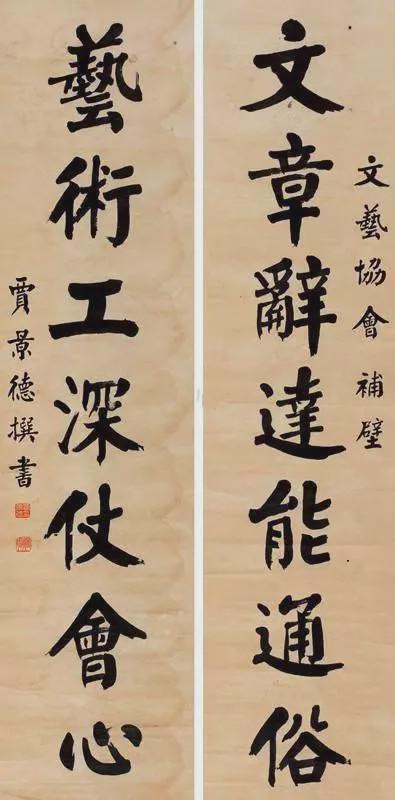 文藝協會 補壁
文章辭達能通俗
藝術工深仗會心
賈景德撰書